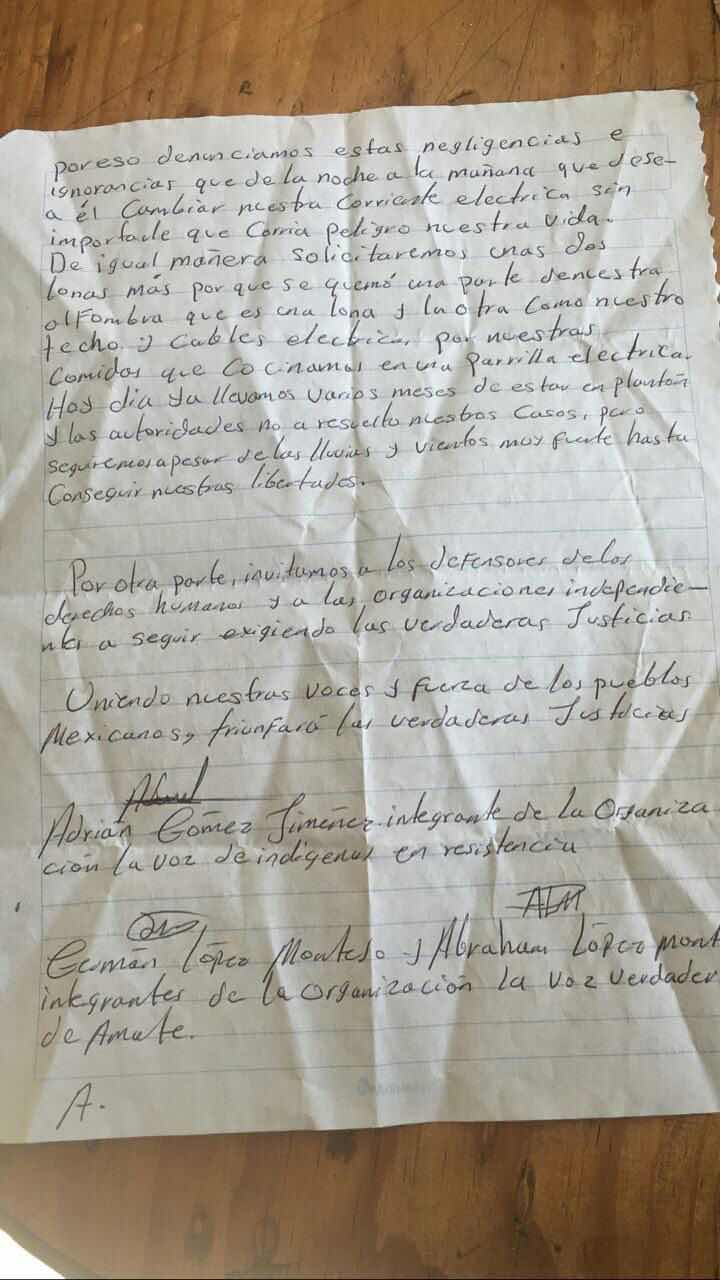 por eso denunciamos estas negligencias e
ignorancias que de la noche a la mañana que dese-
a él Cambiar nuestra Corriente electrica sin
importarle que Corria peligro nuestra vida.
De igual mañera solicitaremos unas dos
lonas más por que se quemó una parte denuestra
alfombra que es una lona y la otra Como nuestro
techo y Cables electrica, por nuestras
Comidas que Cocinamos en una parrilla electrica.
Hoy dia ya llevamos varios meses de estar en plantón
y las autoridades no a resuelto nuestros Casos, pero
seguiremos apesar de las lluvias y vientos muy fuerte hasta
Conseguir nuestras libertades.
Por otra parte, invitamos a los defensores delos
derechos humanos y a las organizaciones independie-
ntes a seguir exigiendo las verdaderas Justicias
Uniendo nuestras voces y fuerza de los pueblos
Mexicanos, triunfará las verdaderas Justicias
Adrián Gómez Jimeñez integrante de la Organiza
ción la voz de indígenas en resistencia
ALM
Germán López Montejo y Abraham López mont
integrantes de la Organización la voz verdader
de Amate.
A.